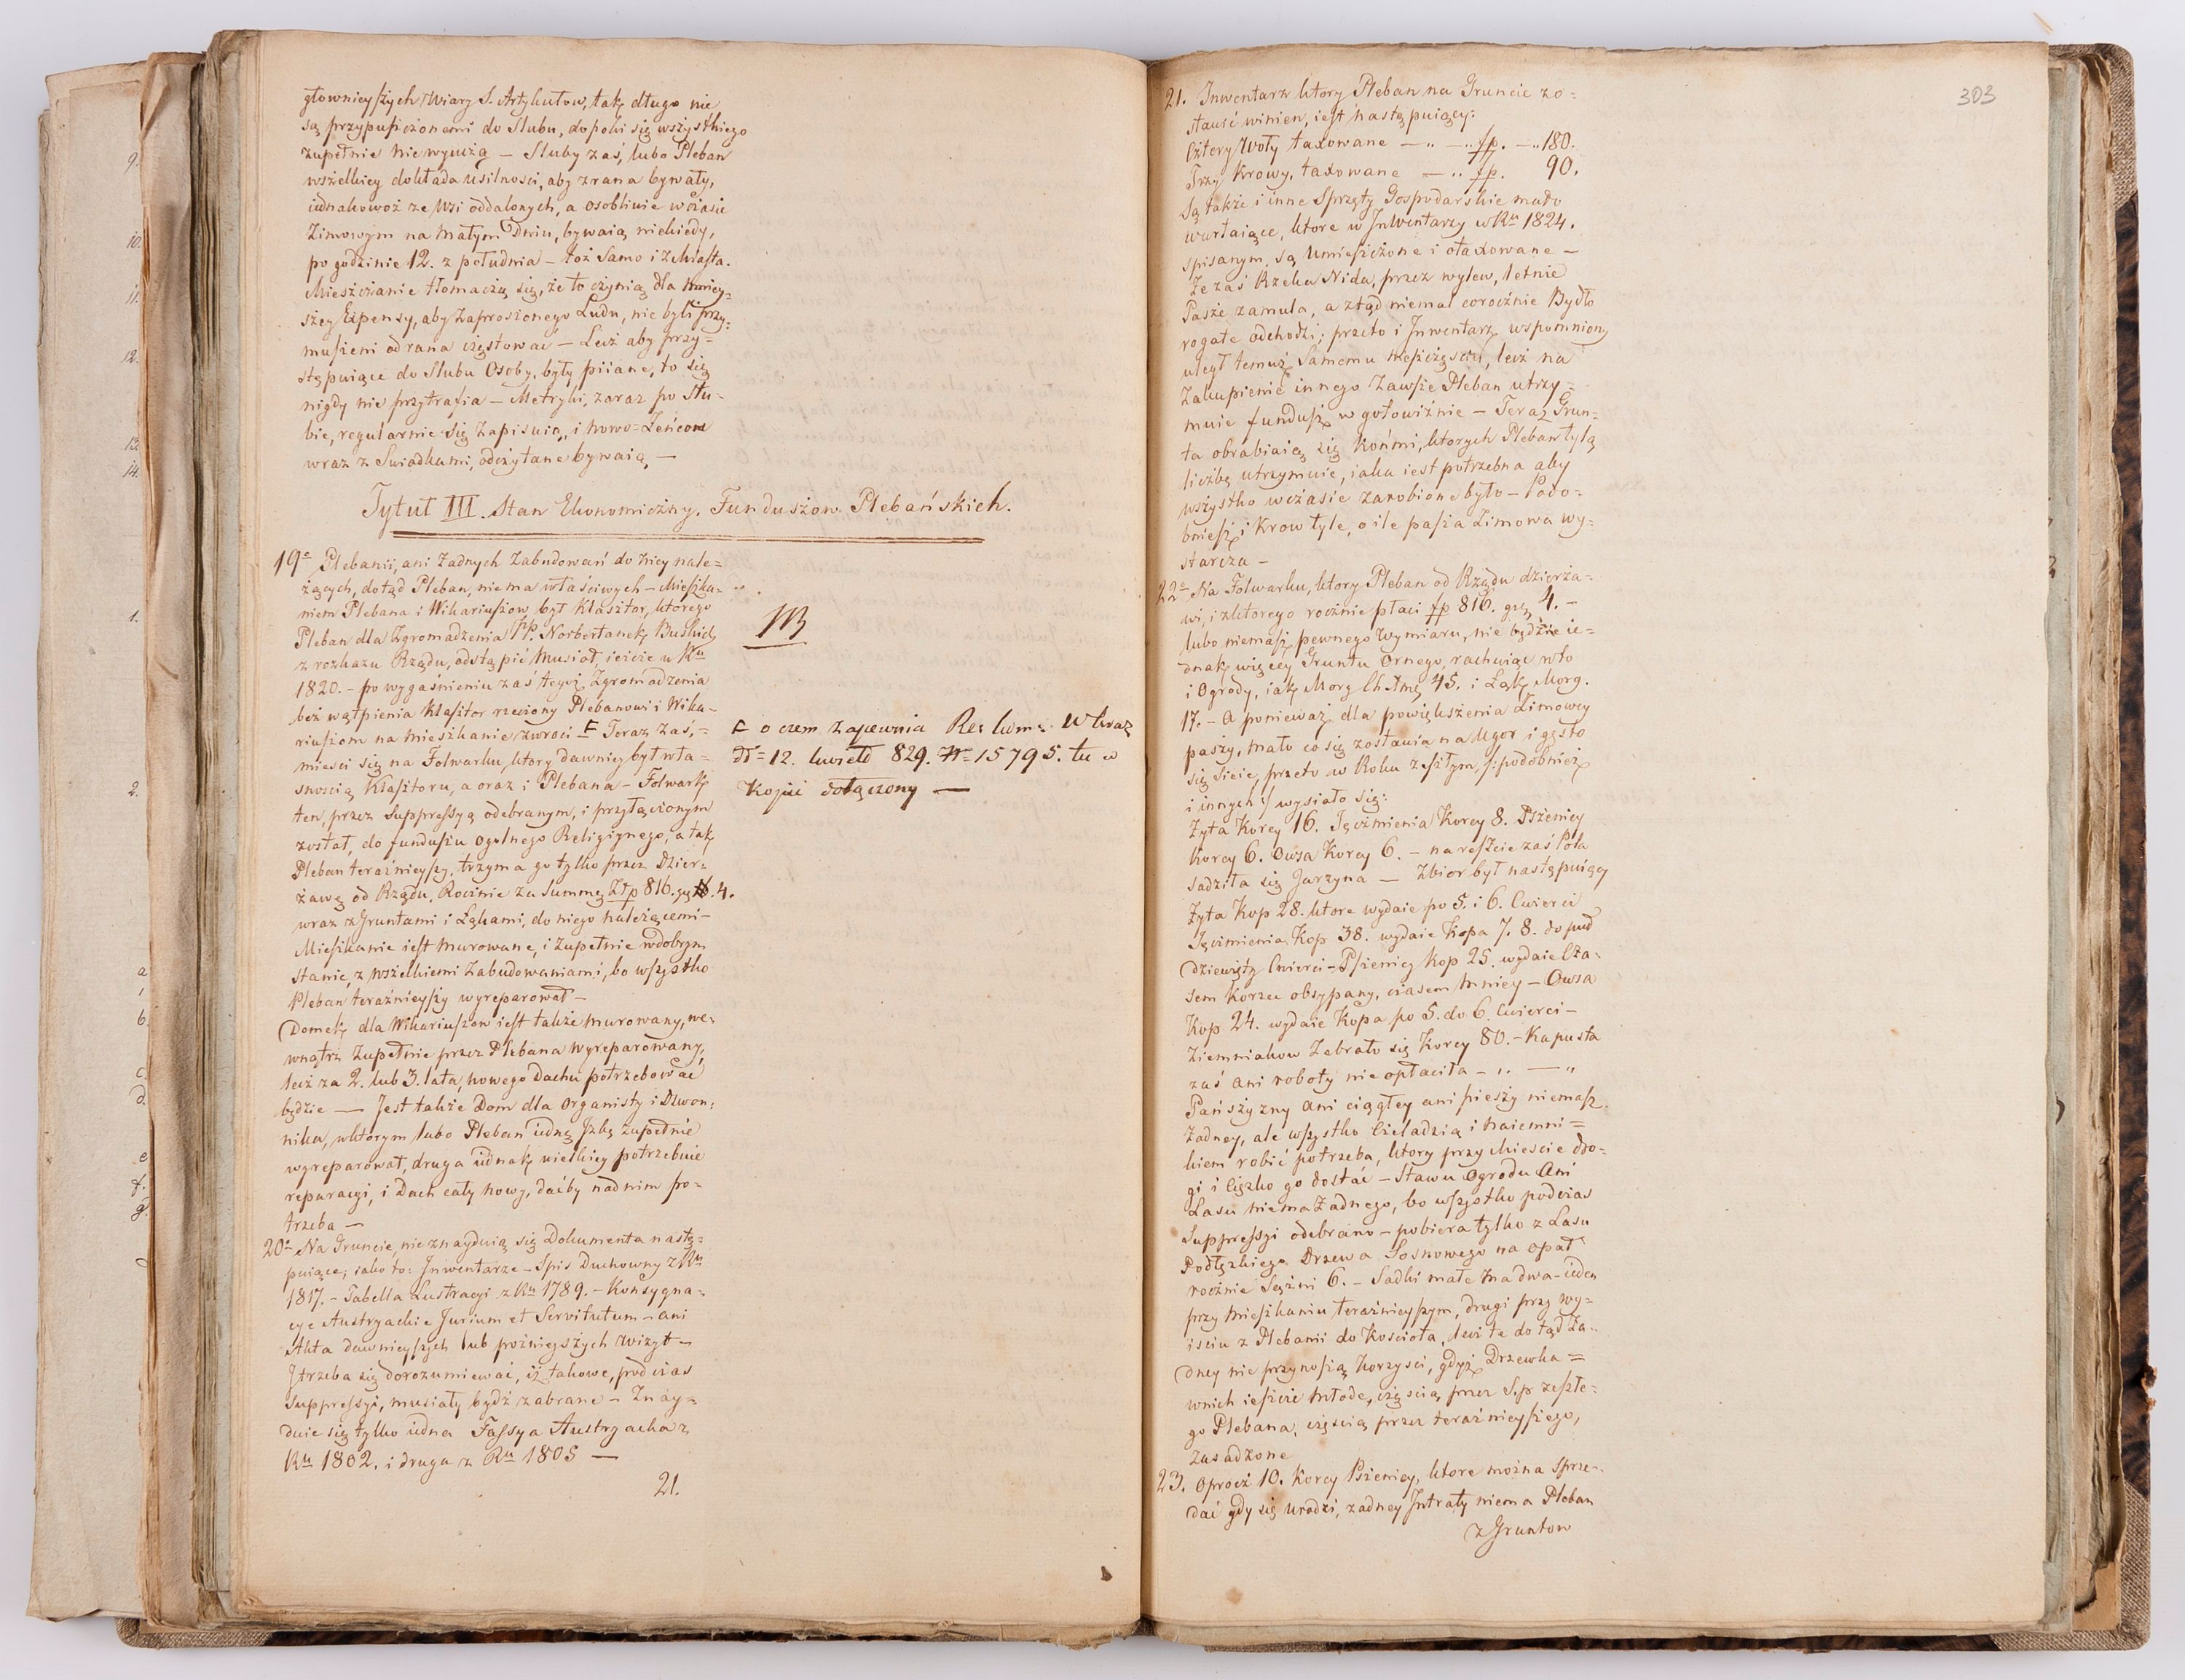 głownieyszych Wiary S. Artykułow, tak długo nie
są przypuszczonemi do Slubu, dopoki się wszystkiego
zupełnie niewyuczą — Sluby zaś, lubo Pleban
wszelkiey dokłada usilnosci, aby zrana bywały,
iednakowoż ze Wsi oddalonych, a osobliwie w czasie
Zimowym na małym Dniu, bywaią niekiedy,
po godzinie 12. z południa — toż samo i z Miasta.
Mieszczanie tłomaczą się, że to czynią dla mniey=
szey Expensy, aby Zaproszonego Ludu, nie byli przy=
muszeni od rana częstować — Lecz aby przy=
stępuiące do Slubu Osoby, były piiane, to się
nigdy nie przytrafia — Metryki, zaraz po Slu-
bie, regularnie się Zapisuią, i Nowo=Żeńcom
wraz z Swiadkami, odczytane bywaią, —
Tytuł III. Stan Ekonomiczny. Funduszow Plebańskich.
19º Plebanii, ani Żadnych Zabudowań do niey nale=
żących, dotąd Pleban, nie ma właściwych — Mieszka=
niem Plebana i Wikariuszow był Klasztor, ktorego
Pleban dla Zgromadzenia PP. Norbertanek Buskich
z rozkazu Rządu, odstąpić musiał, ieszcze w Rku
1820. — po wygaśnieniu zaś tegoż Zgromadzenia
bez wątpienia Klasztor rzeczony Plebanowi i Wika-
riuszom na mieszkanie zwroci F Teraz zaś, =
miesci się na Folwarku, ktory dawniey był wła=
snoscią Klasztoru, a oraz i Plebana — Folwark
ten, przez Suppressyą odebranym, i przyłączonym
został, do funduszu ogolnego Religiynego, a tak
Pleban teraźnieyszy, trzyma go tylko przez Dzier=
żawę od Rządu, Rocznie za Summę Złp 816. gr. 4.
wraz z Gruntami i Łąkami, do niego należącemi —
Mieszkanie iest murowane, i Zupełnie w dobrym
stanie, z wszelkiemi Zabudowaniami, bo wszystko
Pleban teraźnieyszy wyreparował —
Domek dla Wikariuszow iest także murowany, we=
wnątrz Zupełnie przez Plebana wyreparowany,
lecz za 2. lub 3. lata, nowego Dachu potrzebować
będzie — Jest także Dom dla Organisty i Dzwon=
nika, w ktorym lubo Pleban iednę Jzbę zupełnie
wyreparował, druga iednak wielkiey potrzebuie
reparacyi, i Dach cały nowy, dać by nad nim po=
trzeba —
20º Na Gruncie, nie znayduią się Dokumenta nastę=
puiące; iako to: Jnwentarze — Spis Duchowny z Rku
1817. — Tabella Lustracyi z Rku 1789. — Konsygna=
cye Austryackie Jurium et Servitutum — ani
Akta dawnieyszych lub poźnieyszych Wizyt —
J trzeba się dorozumiewać, iż takowe, pod czas
Suppressyi, musiały bydź zabrane — Znay=
duie się tylko iedna Fassya Austryacka z
Rku 1802. i druga z Rku 1805 —
21.
NB
F o czem zapewnia Res kom: Wtwa
dt= 12. kwiet 829. N= 15795. tu w
Kopii dołączony —
303
21. Inwentarz ktory Pleban na Gruncie zo=
stawić winien, iest następuiący:
Cztery Woły taxowane — .. — .. fp. — .. 180.
Trzy Krowy, taxowane — .. fp. 90.
Są także i inne Sprzęty Gospodarskie mało
wartaiące, ktore w Jnwentarzy w Rku 1824.
spisanym, są Umieszczone i otaxowane —
Że zaś Rzeka Nida, przez wylew, letnie
Pasze zamula, a ztąd niemal corocznie Bydło
rogate odchodzi; przeto i Jnwentarz wspomniony
uległ temuż Samemu nieszczęsciu, lecz na
Zakupienie innego Zawsze Pleban utrzy=
muie fundusz w gotowiźnie — Teraz Grun=
ta obrabiaią się końmi, ktorych Pleban tylą
liczbę utrzymuie, iaka iest potrzebna aby
wszystko w czasie zarobione było — Podo=
bnież i Krow tyle, o ile pasza Zimowa wy=
starcza —
22º Na Folwarku, ktory Pleban od Rządu dzierża=
wi, i z ktorego rocznie płaci fp 816. gr. 4. —
lubo niemasz pewnego Wymiaru, nie będzie ie=
dnak więcey Gruntu Ornego, rachuiąc w to
i Ogrody, iak Morg Chełmę 45. i Łąk Morg.
17. — A ponieważ dla powiększenia Zimowey
paszy, mało co się zostawia na Ugor i gęsto
się sieie, przeto w Roku zeszłym /: podobnież
i innych :/ wysiało się:
Żyta Korcy 16. Jęczmienia Korcy 8. Pszenicy
Korcy 6. Owsa Korcy 6. — na reszcie zaś Pola
Sadziła się Jarzyna — Zbior był następuiący
Żyta Kop 28. ktore wydaie po 5. i 6. Cwierci
Jęczmienia Kop 38. wydaie Kopa 7. 8. do pud
dziewięty Cwierci — Pszenicy Kop 25. wydaie Cza=
sem Korzec obsypany, czasem mniey — Owsa
Kop 24. wydaie Kopa po 5. do 6. Cwierci —
Ziemniakow Zebrało się Korcy 80. — Kapusta
zaś ani roboty nie opłaciła — „ — „
Pańszczyzny ani ciągłey ani pieszy niemasz
Żadney, ale wszystko Czeladzią i naiemni=
kiem robić potrzeba, ktory przy Miescie dro=
gi i Ciężko go dostać — Stawu Ogrodu Ani
Lasu niema Żadnego, bo wszystko podczas
Suppressyi odebrano — pobiera tylko z Lasu
Podłęzkiego Drzewa Sosnowego na opał
rocznie Sążni 6. — Sadki małe ma dwa — ieden
przy Mieszkaniu teraźnieyszym, drugi przy wy=
isciu z Plebanii do Kościoła, lecz te do tąd ża=
dney nie przynoszą korzysci, gdyż Drzewka =
w nich ieszcze młode, częscią przez S.p. zeszłe=
go Plebana, częscią przez teraźnieyszego,
Zasadzone
23. Oprocz 10. Korcy Pszenicy, ktore można sprze=
dać gdy się urodzi, zadney Jntraty niema Pleban
z Gruntow